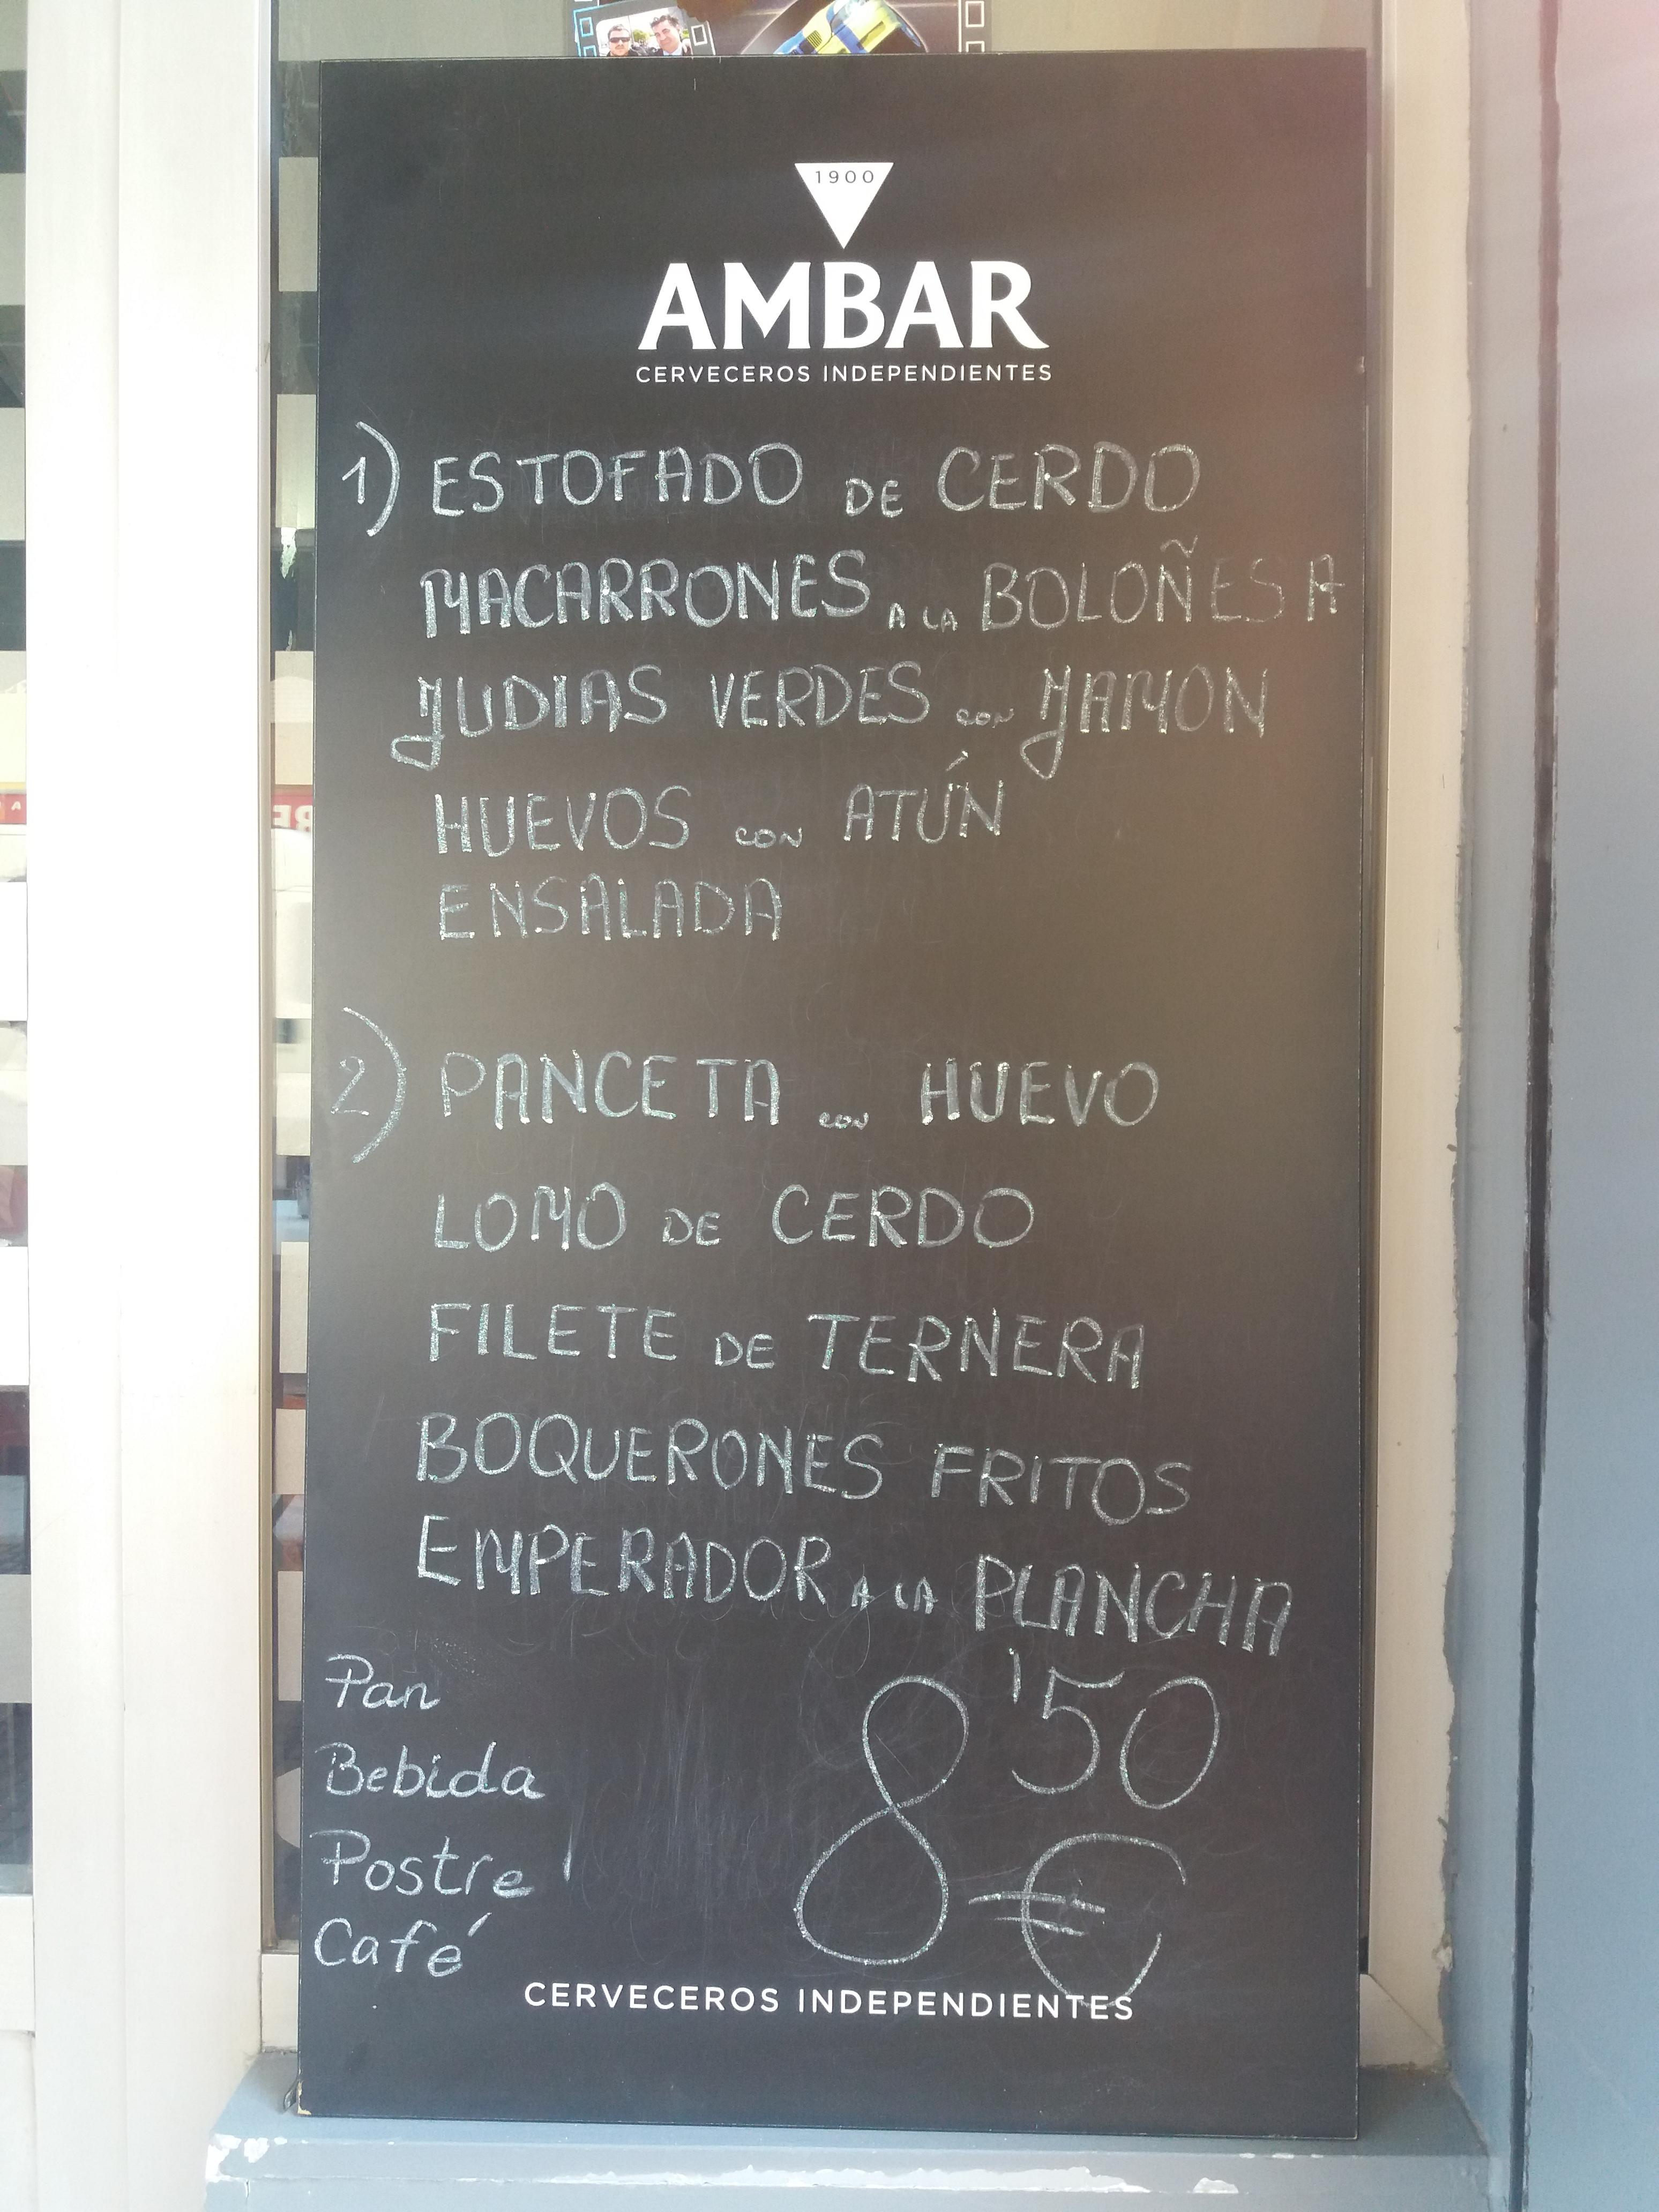 1900
AMBAR
CERVECEROS INDEPENDIENTES
1) ESTOFADO DE CERDO
MACARRONES A LA BOLOÑESA
JUDIAS VERDES CON JAMON
HUEVOS CON ATÚN
ENSALADA
2) PANCETA CON HUEVO
LOMO DE CERDO
FILETE DE TERNERA
BOQUERONES FRITOS
EMPERADOR A LA PLANCHA
Pan
Bebida
Postre
Café
8'50 €
CERVECEROS INDEPENDIENTES